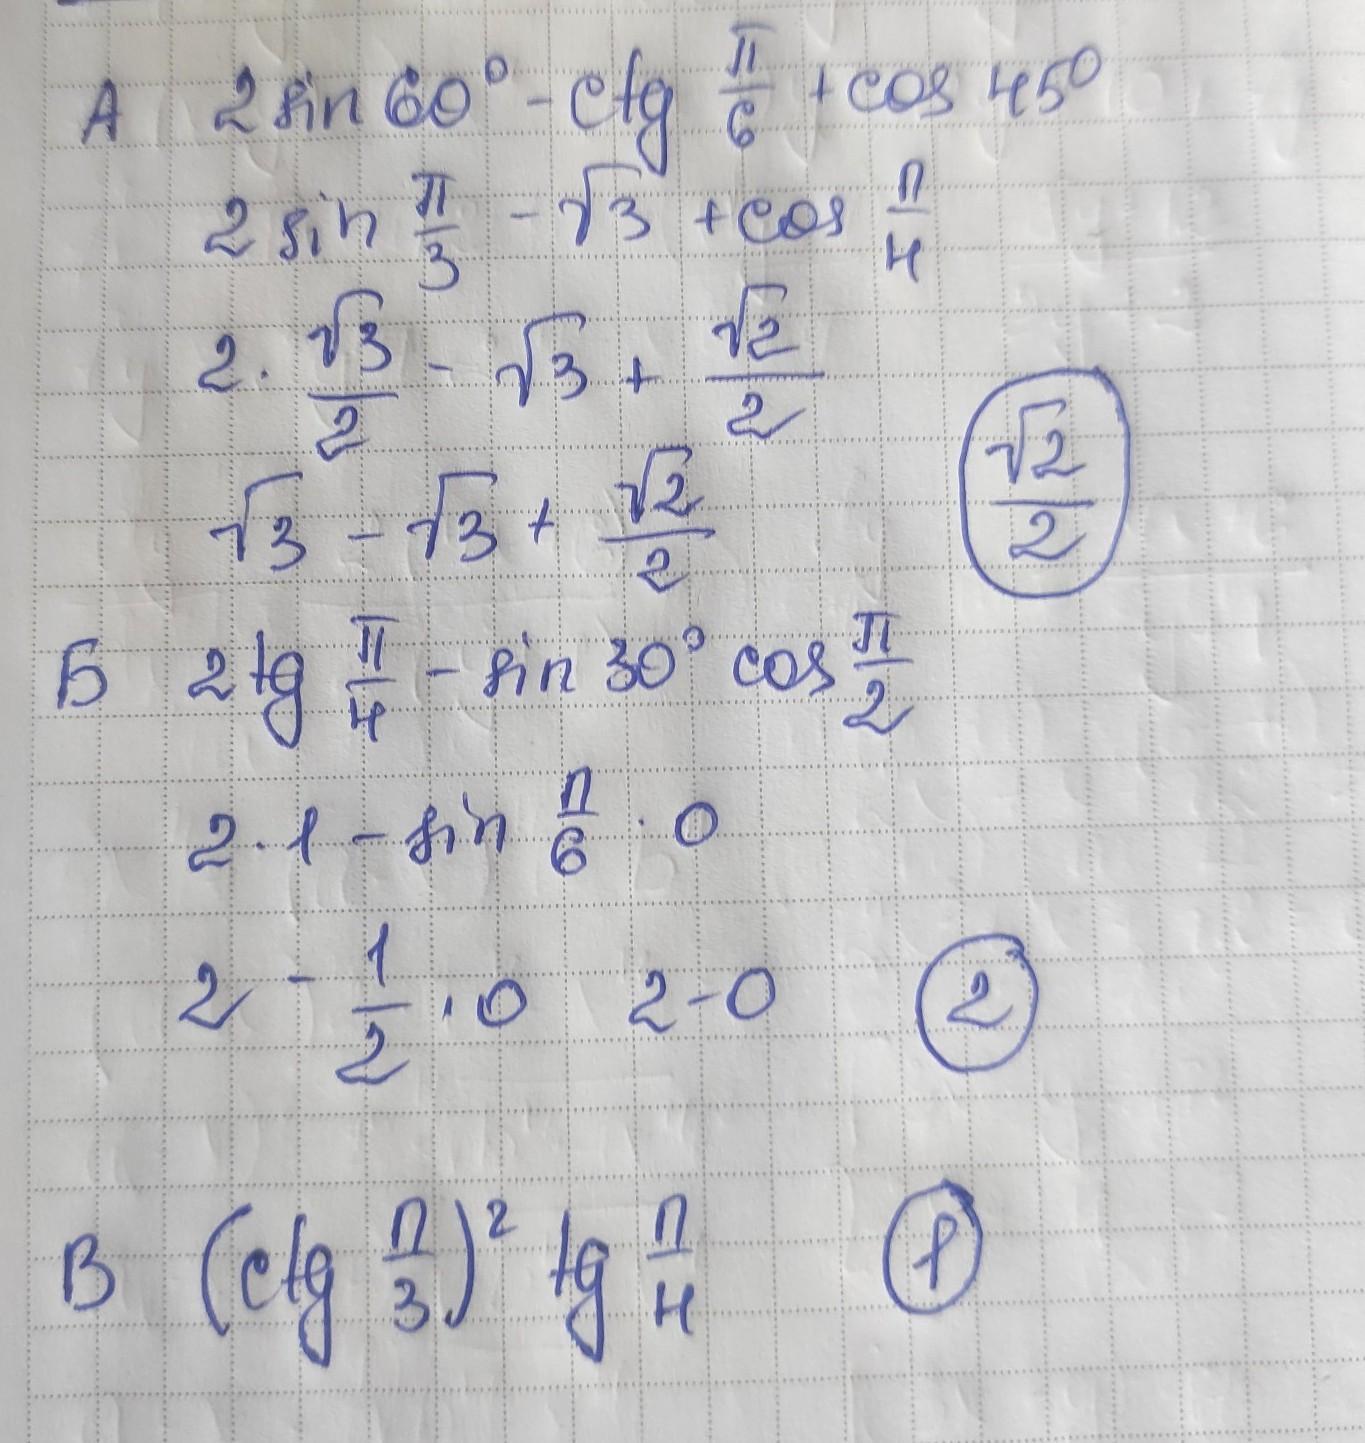 А 2 sin 60° - ctg π/6 + cos 45°
2 sin π/3 - √3 + cos π/4
2 · √3/2 - √3 + √2/2
√3 - √3 + √2/2 √2/2
Б 2 tg π/4 - sin 30° cos π/2
2 · 1 - sin π/6 · 0
2 - 1/2 · 0 2 - 0 2
В (ctg π/3)² tg π/4 1